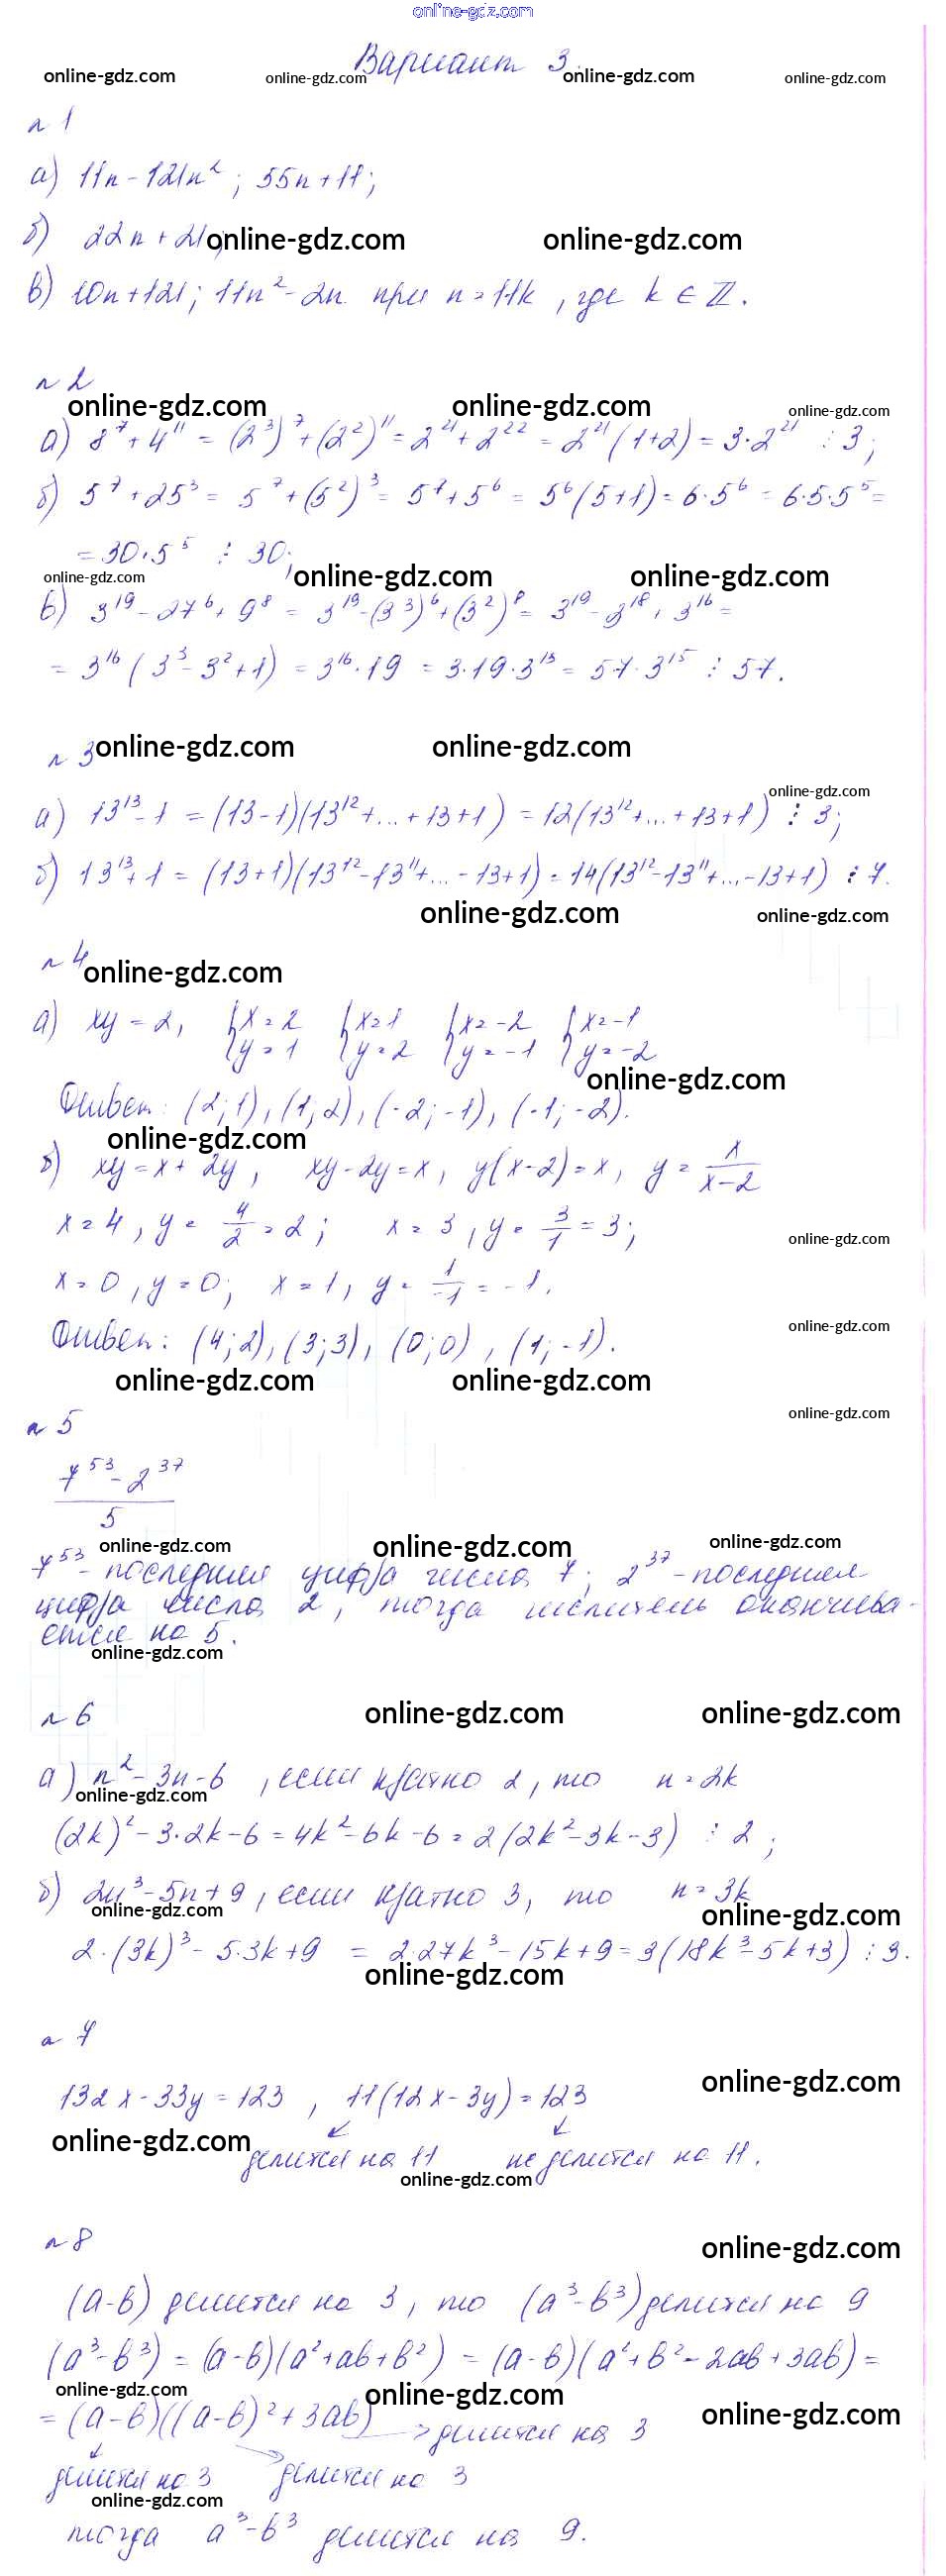 online-gdz.com
Вариант 3.
online-gdz.com online-gdz.com online-gdz.com online-gdz.com
n 1
а) 11n - 121n² ; 55n + 11;
б) 22n + 21; online-gdz.com online-gdz.com
в) 10n + 121; 11n² - 2n при n = 11k, где k ∈ ℤ.
n 2
online-gdz.com online-gdz.com online-gdz.com
а) 8⁷ + 4¹¹ = (2³)⁷ + (2²)¹¹ = 2²¹ + 2²² = 2²¹(1+2) = 3·2²¹ ⋮ 3;
б) 5⁷ + 25³ = 5⁷ + (5²)³ = 5⁷ + 5⁶ = 5⁶(5+1) = 6·5⁶ = 6·5·5⁵ =
= 30·5⁵ ⋮ 30;
online-gdz.com online-gdz.com online-gdz.com
в) 3¹⁹ - 27⁶ + 9⁸ = 3¹⁹ - (3³)⁶ + (3²)⁸ = 3¹⁹ - 3¹⁸ + 3¹⁶ =
= 3¹⁶(3³ - 3² + 1) = 3¹⁶·19 = 3·19·3¹⁵ = 57·3¹⁵ ⋮ 57.
n 3 online-gdz.com online-gdz.com
online-gdz.com
а) 13¹³ - 1 = (13-1)(13¹² + ... + 13 + 1) = 12(13¹² + ... + 13 + 1) ⋮ 3;
б) 13¹³ + 1 = (13+1)(13¹² - 13¹¹ + ... - 13 + 1) = 14(13¹² - 13¹¹ + ... - 13 + 1) ⋮ 7.
online-gdz.com online-gdz.com
n 4 online-gdz.com
а) xy = 2, {x = 2 {x = 1 {x = -2 {x = -1
{y = 1 {y = 2 {y = -1 {y = -2
online-gdz.com
Ответ: (2; 1), (1; 2), (-2; -1), (-1; -2).
online-gdz.com
б) xy = x + 2y, xy - 2y = x, y(x-2) = x, y = x/(x-2)
x = 4, y = 4/2 = 2; x = 3, y = 3/1 = 3;
online-gdz.com
x = 0, y = 0; x = 1, y = 1/-1 = -1.
Ответ: (4; 2), (3; 3), (0; 0), (1; -1).
online-gdz.com
online-gdz.com online-gdz.com
n 5
online-gdz.com
7⁵³ - 2³⁷
5
online-gdz.com online-gdz.com online-gdz.com
7⁵³ - последняя цифра числа 7; 2³⁷ - последняя
цифра числа 2, тогда числитель оканчива-
ется на 5.
online-gdz.com
n 6 online-gdz.com online-gdz.com
а) n² - 3n - 6, если кратно 2, то n = 2k
online-gdz.com
(2k)² - 3·2k - 6 = 4k² - 6k - 6 = 2(2k² - 3k - 3) ⋮ 2;
б) 2n³ - 5n + 9, если кратно 3, то n = 3k
online-gdz.com online-gdz.com
2·(3k)³ - 5·3k + 9 = 2·27k³ - 15k + 9 = 3(18k³ - 5k + 3) ⋮ 3.
online-gdz.com
n 7
online-gdz.com
132x - 33y = 123, 11(12x - 3y) = 123
online-gdz.com
делится на 11 не делится на 11.
online-gdz.com
n 8
online-gdz.com
(a-b) делится на 3, то (a³ - b³) делится на 9
(a³ - b³) = (a-b)(a² + ab + b²) = (a-b)(a² + b² - 2ab + 3ab) =
online-gdz.com online-gdz.com online-gdz.com
= (a-b)((a-b)² + 3ab) → делится на 3
делится на 3 делится на 3
online-gdz.com
тогда a³ - b³ делится на 9.